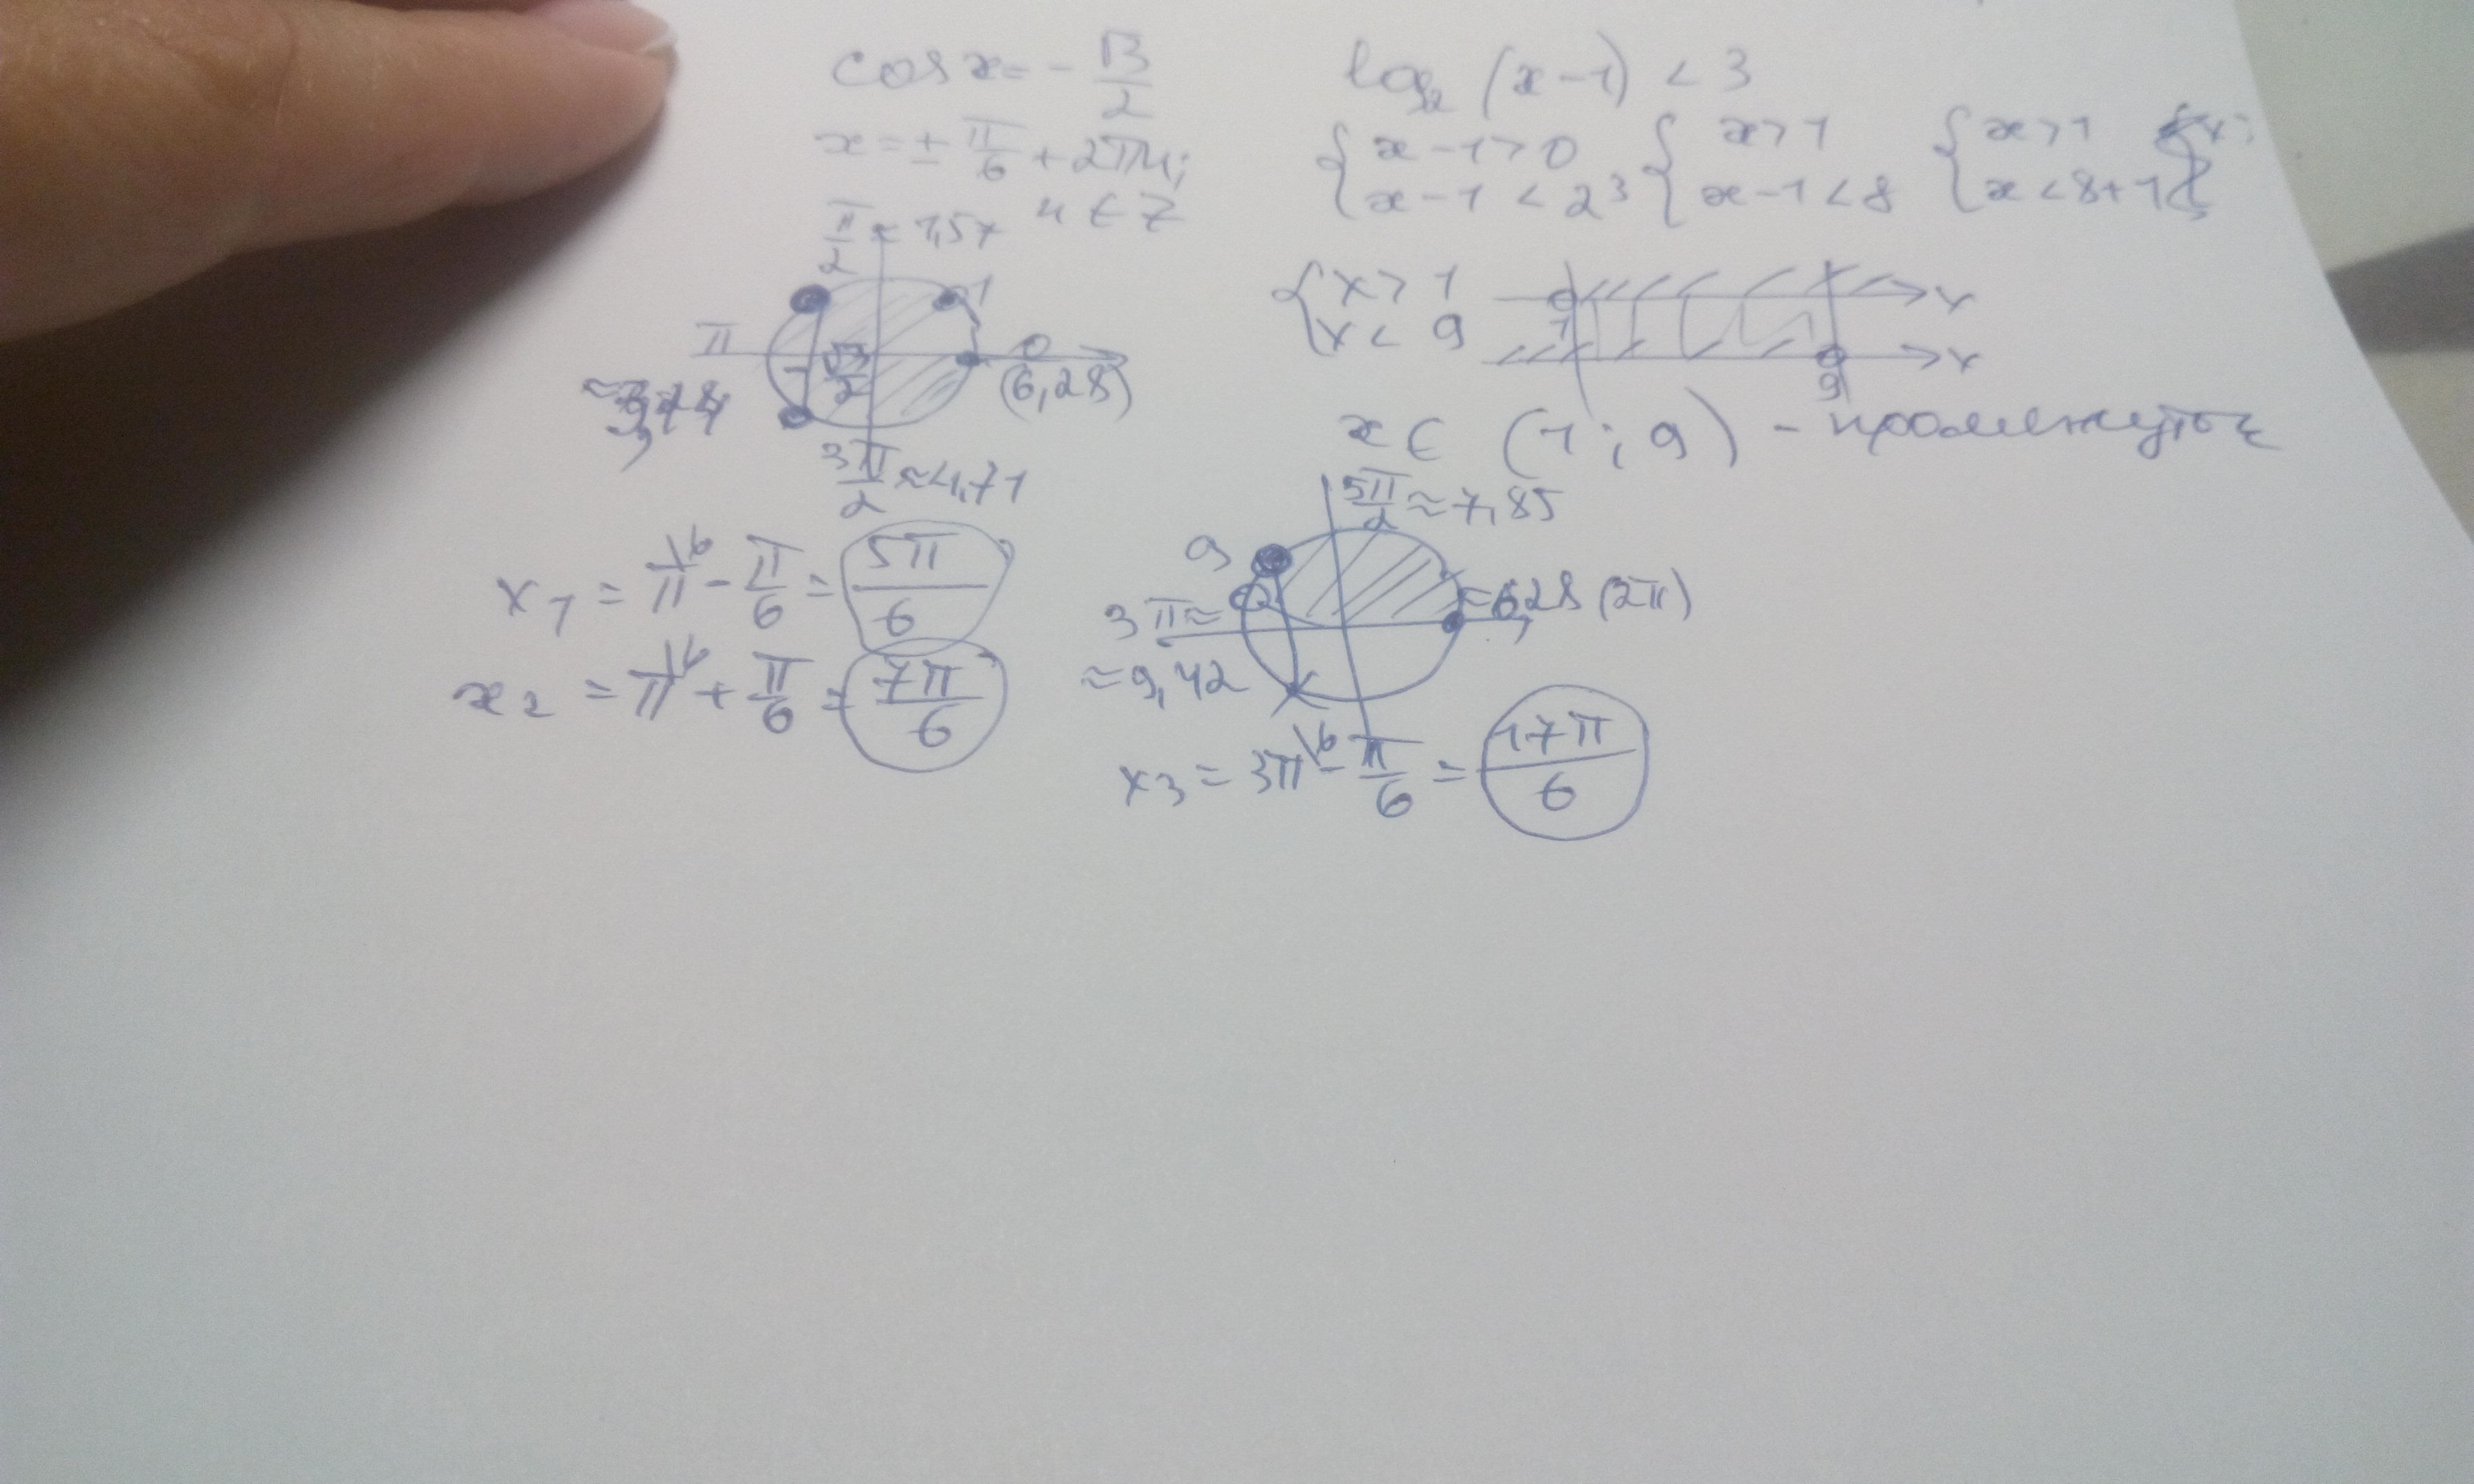 cos x = - √3/2
x = ± π/6 + 2πn;
n ∈ Z
π/2 ≈ 1,57
1
π
0
(6,28)
- √3/2
3π/2 ≈ 4,71
x1 = π\6 - π/6 = 5π/6
x2 = π\6 + π/6 = 7π/6
log2 (x-1) < 3
{ x-1>0 { x>1 { x>1
{ x-1 < 2^3 { x-1<8 { x<8+1
{ x> 1
{ x< 9
1
x
9
x
x ∈ (1; 9) - промежуток
5π/2 ≈ 7,85
9
3π ≈
≈ 9,42
≈ 6,28 (2π)
x3 = 3π\6 - π/6 = 17π/6